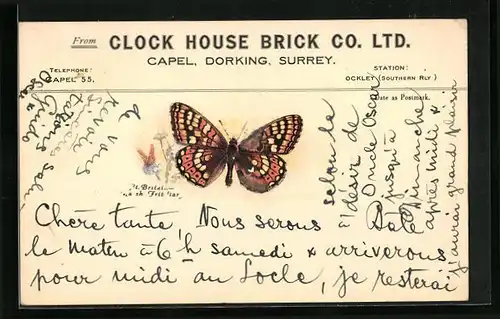 From CLOCK HOUSE BRICK CO. LTD.
CAPEL, DORKING, SURREY.
TELEPHONE:
CAPEL 55.
STATION:
OCKLEY (SOUTHERN RLY)
Date as Postmark.
Gt. Britain
Heath Fritillary
Chère tante, Nous serons
le maten à 6h samedi & arriverons
pour midi au Locle, je resterai
selon le
désir de
Oncle Oscar
jusqu'à
Dimanche
après midi &
j'aurai grand plaisir
de vous
revoir
Oscar
Guido